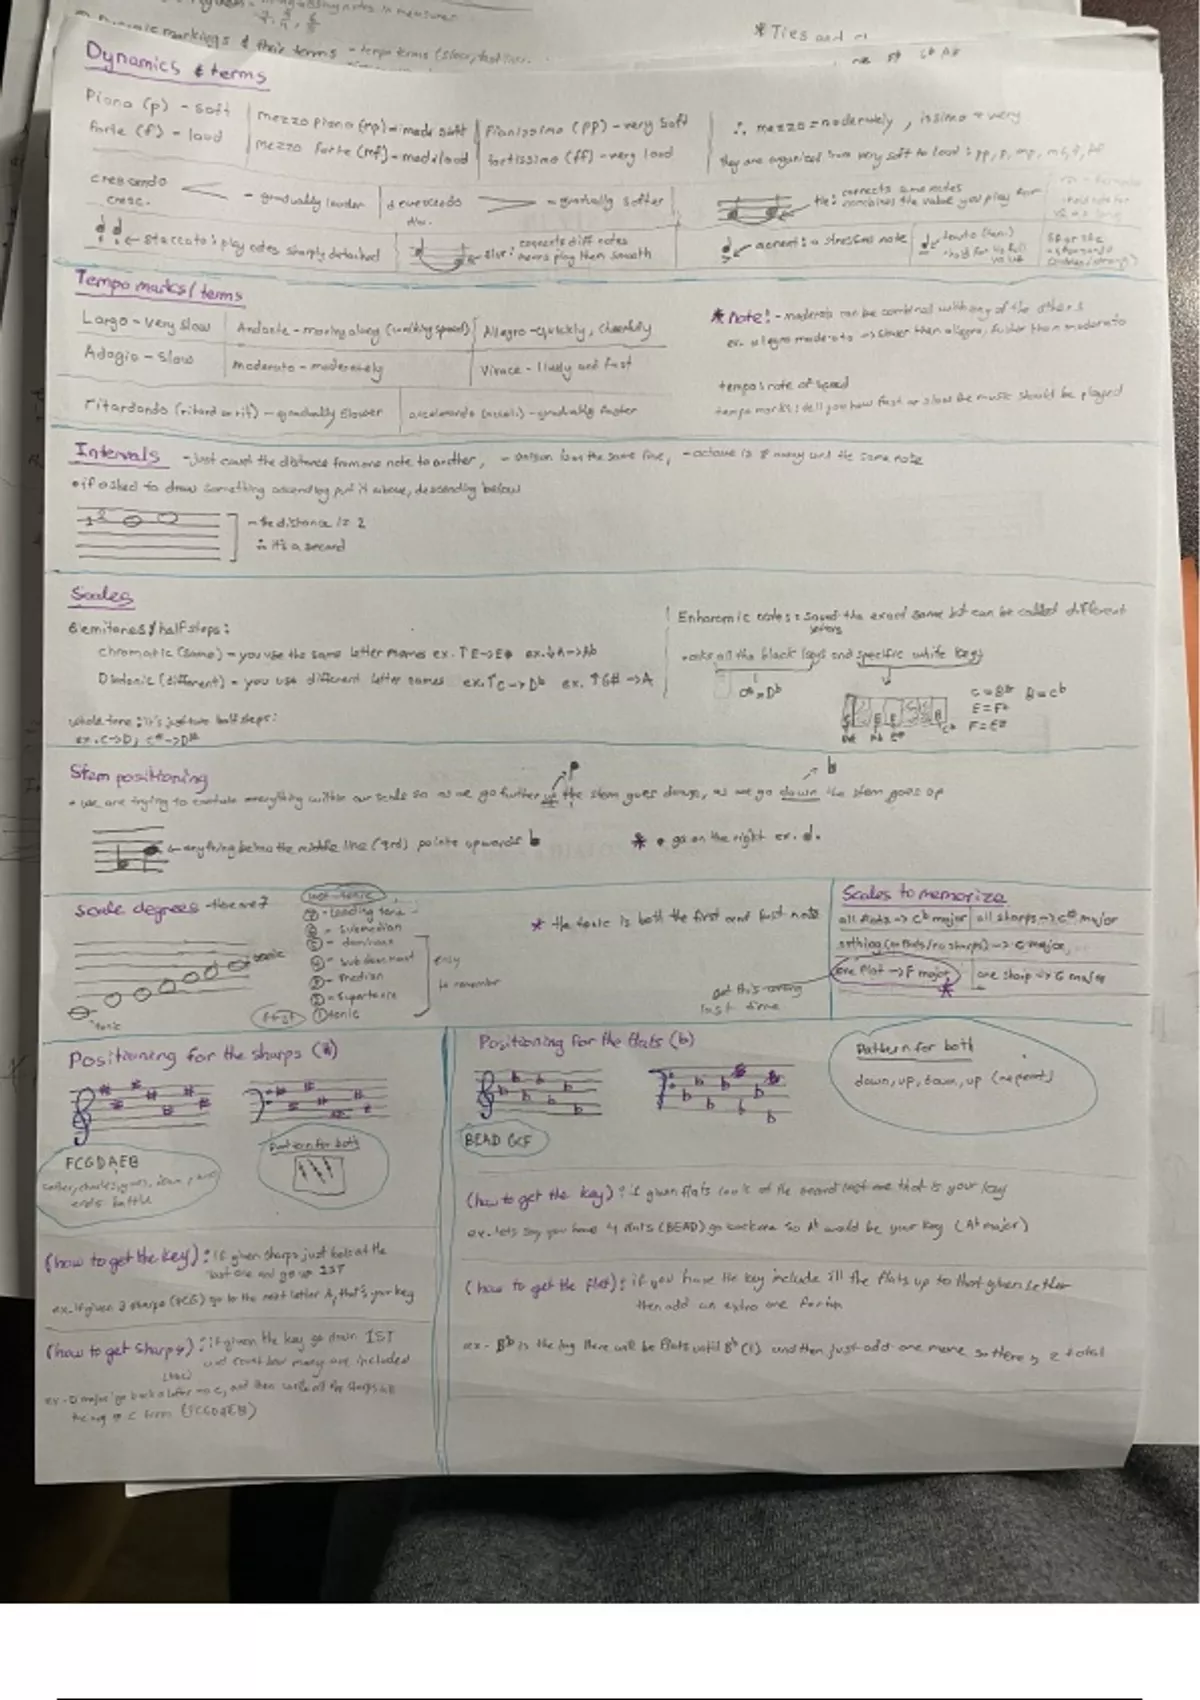 * Ties and
Dynamics & terms
Piano (p) - soft
forte (f) - loud
mezzo piano (mp) - mode soft
mezzo forte (mf) - mod loud
Pianissimo (pp) - very soft
fortissimo (ff) - very loud
∴ mezzo = moderately , issimo = very
they are organized from very soft to loud : pp, p, mp, mf, f, ff
crescendo - gradually louder
cresc.
decrescendo - gradually softer
tie: connects same notes
combines the value you play for
staccato : play notes sharply detached
slur : connects diff notes
means play them smooth
accent : a stressed note
Tempo marks/terms
Largo - very slow
Andante - moving along (walking speed)
Allegro - quickly, cheerfully
Adagio - slow
moderato - moderately
Vivace - lively and fast
ritardando (ritard or rit) - gradually slower
accelerando (accel.) - gradually faster
* Note! - moderato can be combined with any of the others
ex. allegro moderato → slower then allegro, faster than moderato
tempo : rate of speed
tempo marks : tell you how fast or slow the music should be played
Intervals - just count the distance from one note to another, - unison is on the same line, - octave is 8 away and the same note
• if asked to draw something ascending put it above, descending below
1 2
- the distance is 2
∴ it's a second
Scales
Semitones/half steps :
chromatic (same) - you use the same letter names ex. ↑E→E# ex.↓A→Ab
Diatonic (different) - you use different letter names ex.↑C→Db ex. ↑G#→A
whole tone : it's just two half steps :
ex. C→D, C#→D#
Enharmonic notes : sound the exact same but can be called different
letters
• onto all the black keys and specific white keys
C#=Db
C=B# B=Cb
E=Fb
F=E#
Stem positioning
• we are trying to contain everything within our scale so as we go further up the stem goes down, as we go down the stem goes up
← anything below the middle line (3rd) points upwards
* • go on the right ex.
Scale degrees - there are 7
tonic
tonic
⑦ - Leading tone
⑥ - submediant
⑤ - dominant
④ - subdominant
③ - median
② - supertonic
① tonic
first
easy
to remember
* the tonic is both the first and last note
Scales to memorize
all flats → Cb major
all sharps → C# major
nothing (no flats/no sharps) → C major
one flat → F major
one sharp → G major
got this wrong
last time
Positioning for the sharps (#)
Pattern for both
FCGDAEB
Positioning for the flats (b)
BEAD GCF
Pattern for both
down, up, down, up (repeat)
(how to get the key) : if given sharps just look at the
last one and go up 1ST
ex. if given 3 sharps (FCG) go to the next letter A, that's your key
(how to get sharps) : if given the key go down 1ST
and count how many are included
(FCGDAEB)
(how to get the key) : if given flats look at the second last one that is your key
ex. lets say you have 4 flats (BEAD) go back one so Ab would be your key (Ab major)
(how to get the flat) : if you have the key include all the flats up to that given letter
then add an extra one
ex - Bb is the key there will be flats until Bb (1) and then just add one more so there is 2 total